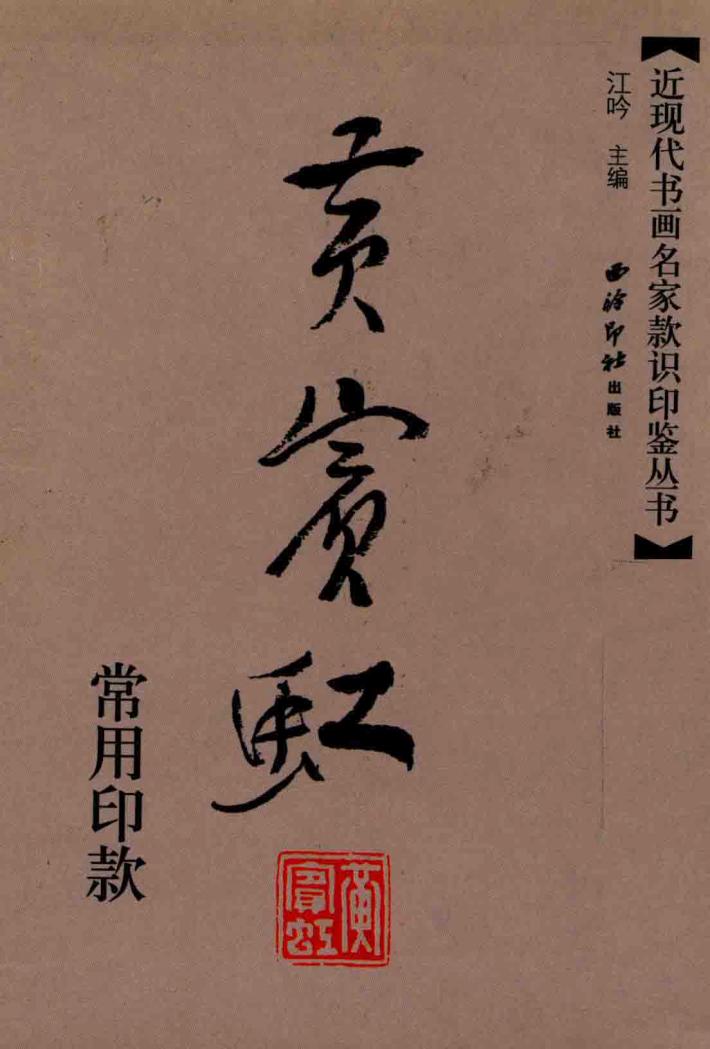 近现代书画名家款识印鉴丛书
江吟 主编
西泠印社出版社
黄宾虹
常用印款
黄賓虹